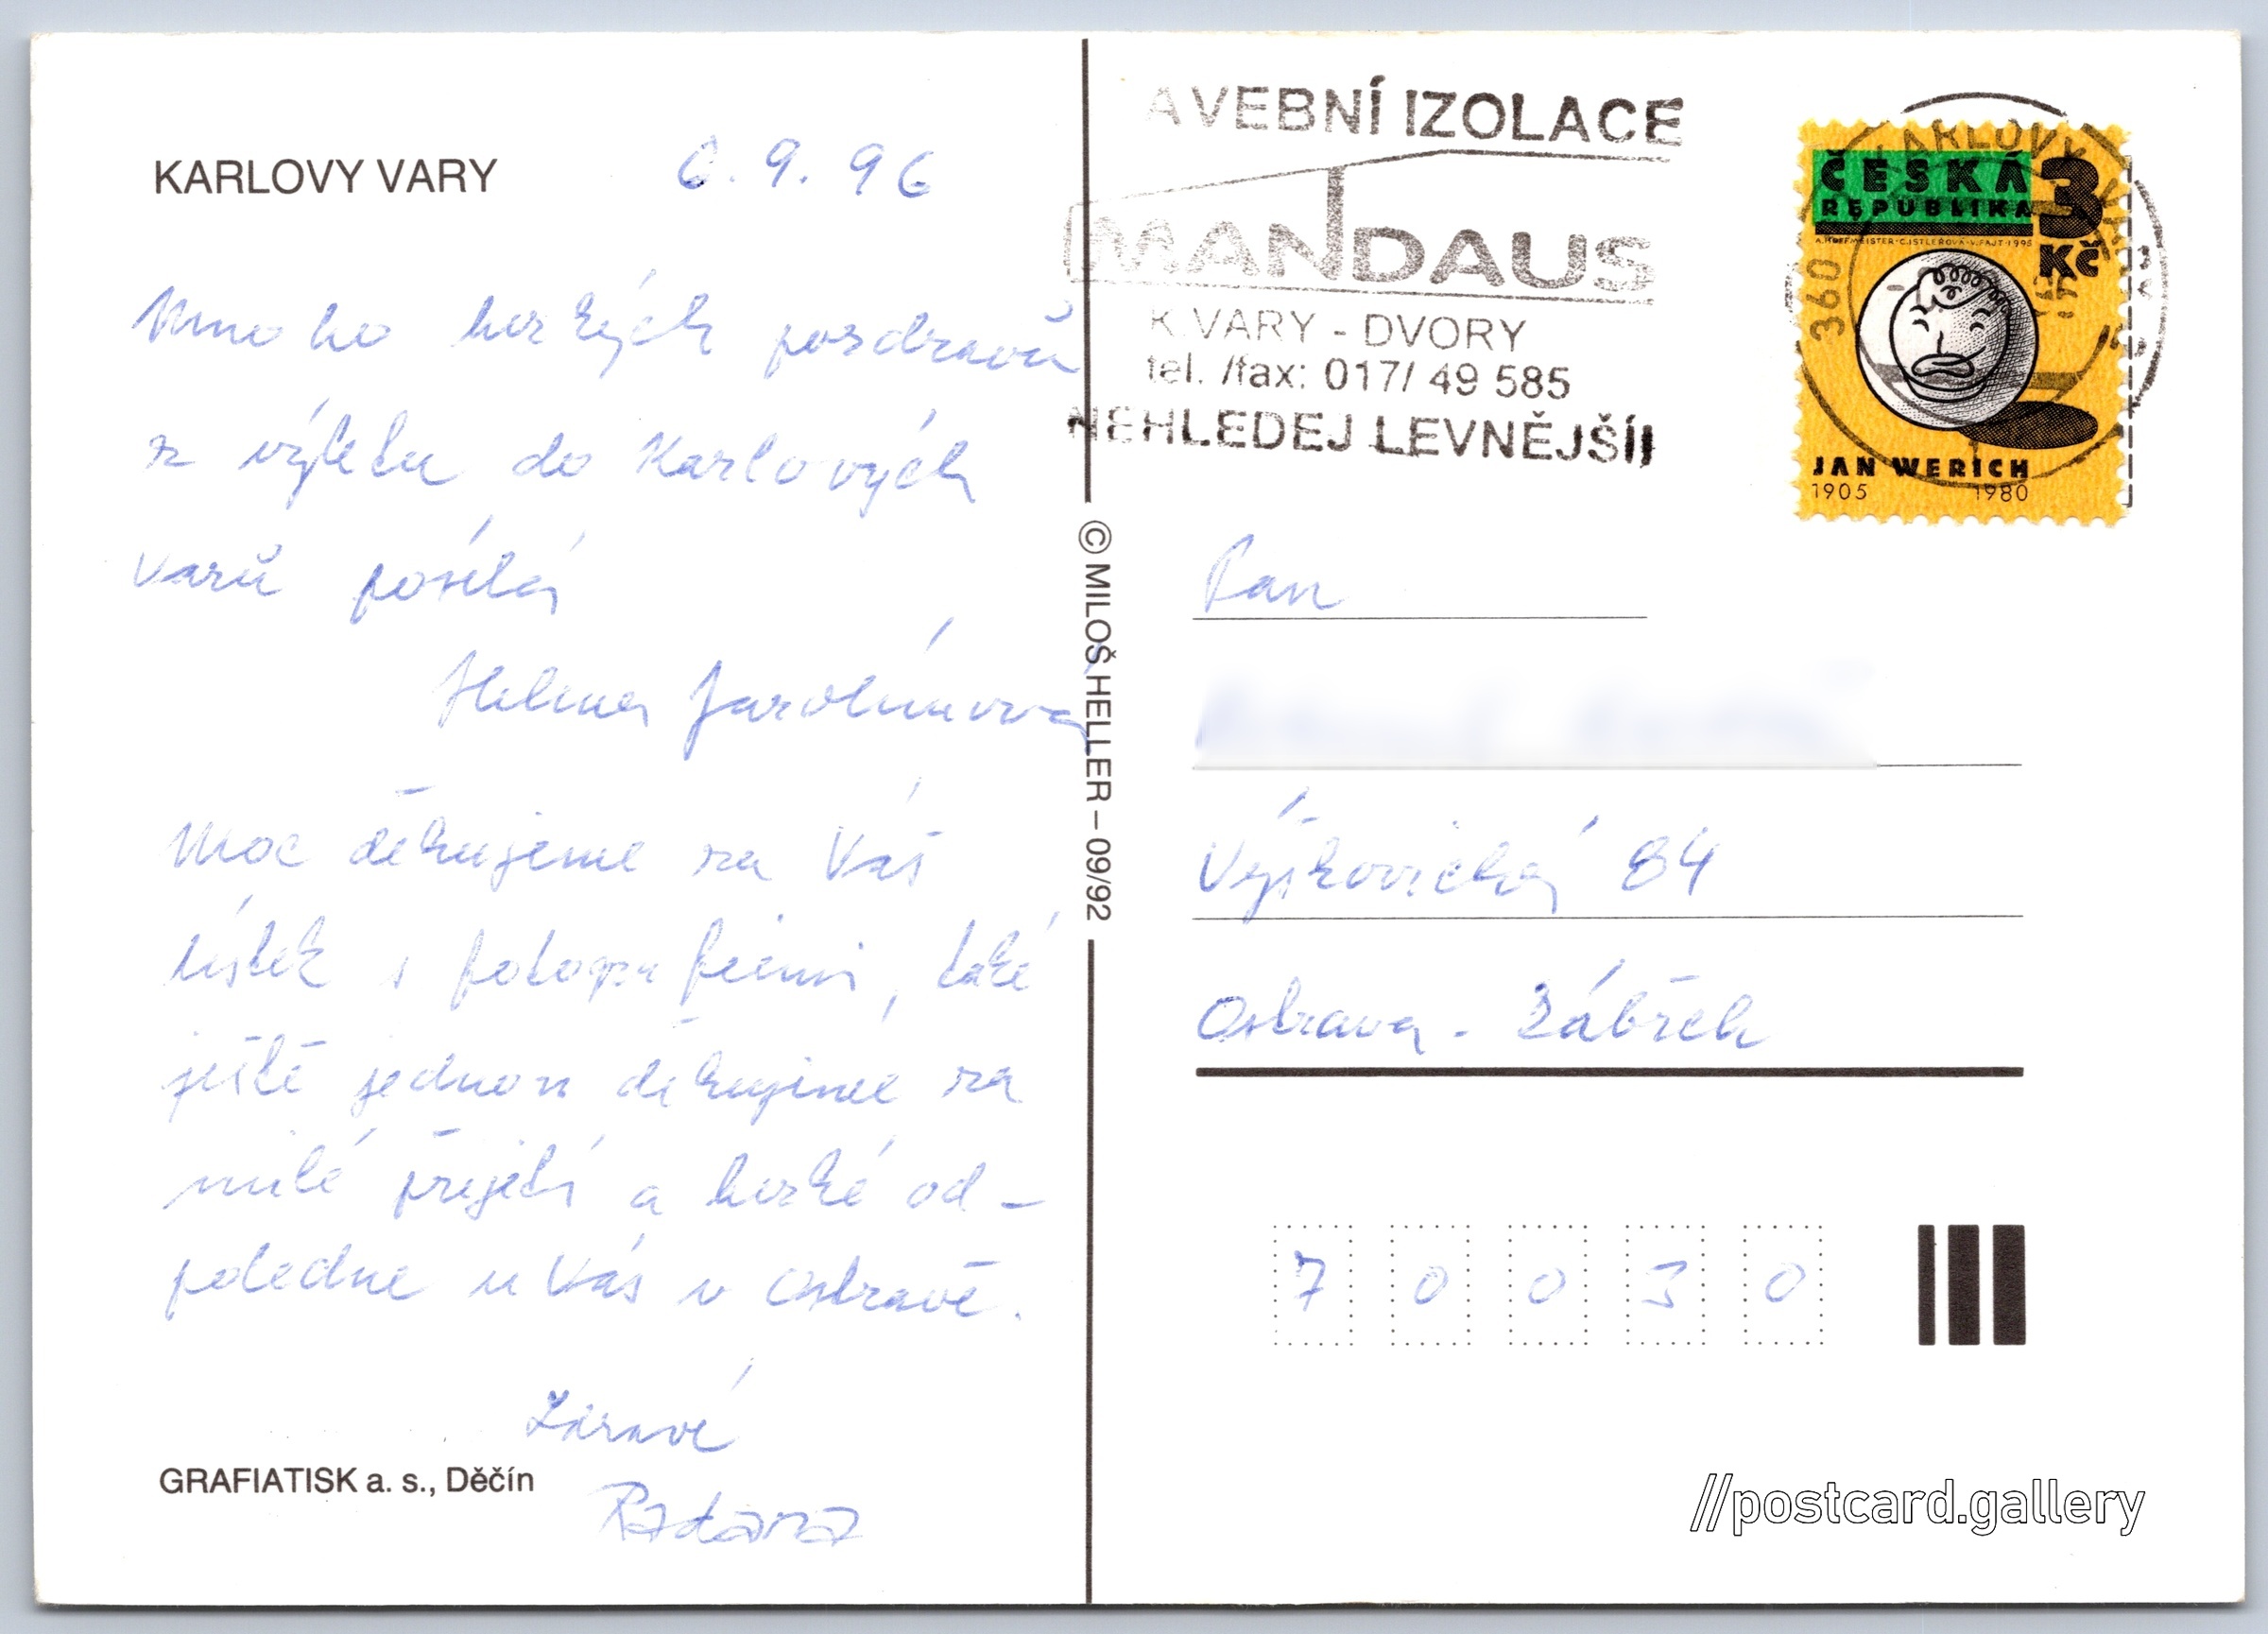 KARLOVY VARY
6.9.96
Mnoho hezkých pozdravů
z výletu do Karlových
Varů posílá
Helena Jarolímová
Moc děkujeme za Váš
lístek s fotografiemi, také
ještě jednou děkujeme za
milé přijetí a hezké od-
poledne u Vás v Ostravě.
Zdraví
Radana
GRAFIATISK a. s., Děčín
© MILOŠ HELLER – 09/92
AVEBNÍ IZOLACE
MANDAUS
K.VARY - DVORY
tel. /fax: 017/ 49 585
NEHLEDEJ LEVNĚJŠÍ!
KARLOVY VARY
360
ČESKÁ
REPUBLIKA
3
Kč
A.HOFFMEISTER·C.ISTLEROVÁ·V.FAJT·1995
JAN WERICH
1905 1980
Pan
Výškovická 84
Ostrava - Zábřeh
7 0 0 3 0
//postcard.gallery